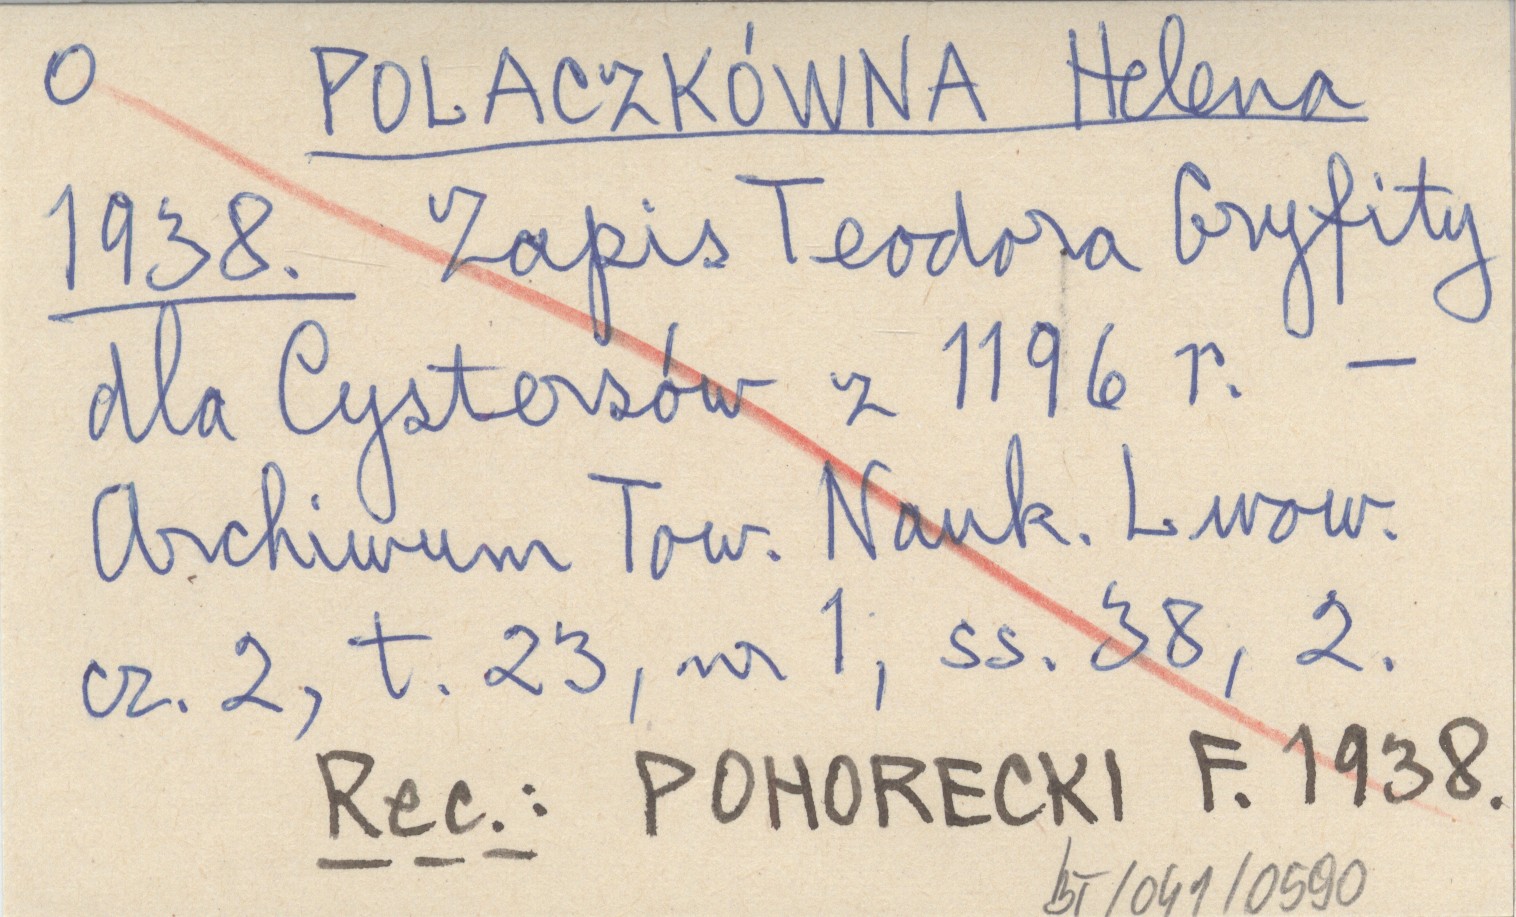 O POLACZKÓWNA Helena
1938. Zapis Teodora Gryfity
dla Cystersów z 1196 r. —
Archiwum Tow. Nauk. Lwow.
cz. 2, t. 23, nr 1, ss. 38, 2.
Rec.: POHORECKI F. 1938.
BT/041/0590